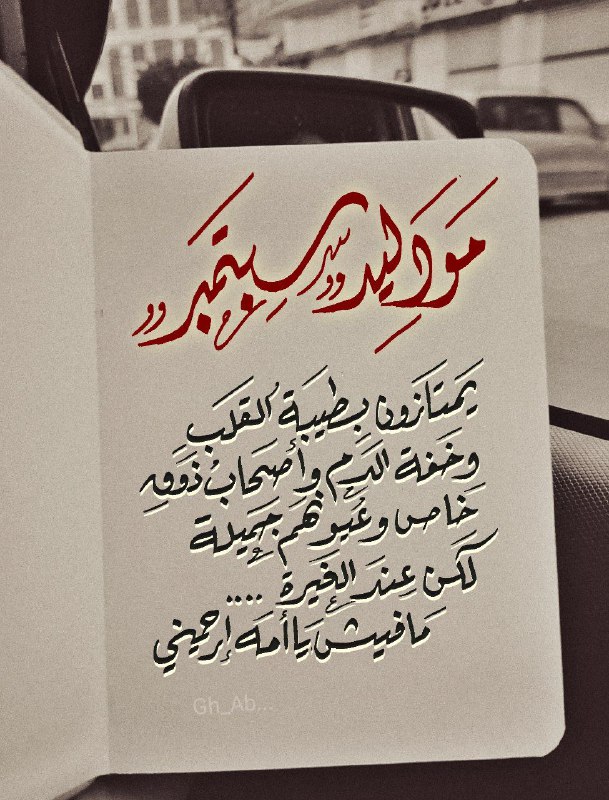 مَوَاليد سبتمبر
يَمتَازون بِطيبَة القَلَب
وخفة الدَمِ وأصحَابْ ذَوَقِ
خَاص وعُيونهُم جَميلة
لَكن عِندَ الغَيرة ....
مَافيش يَا أمَه إرحميني
Gh_Ab...